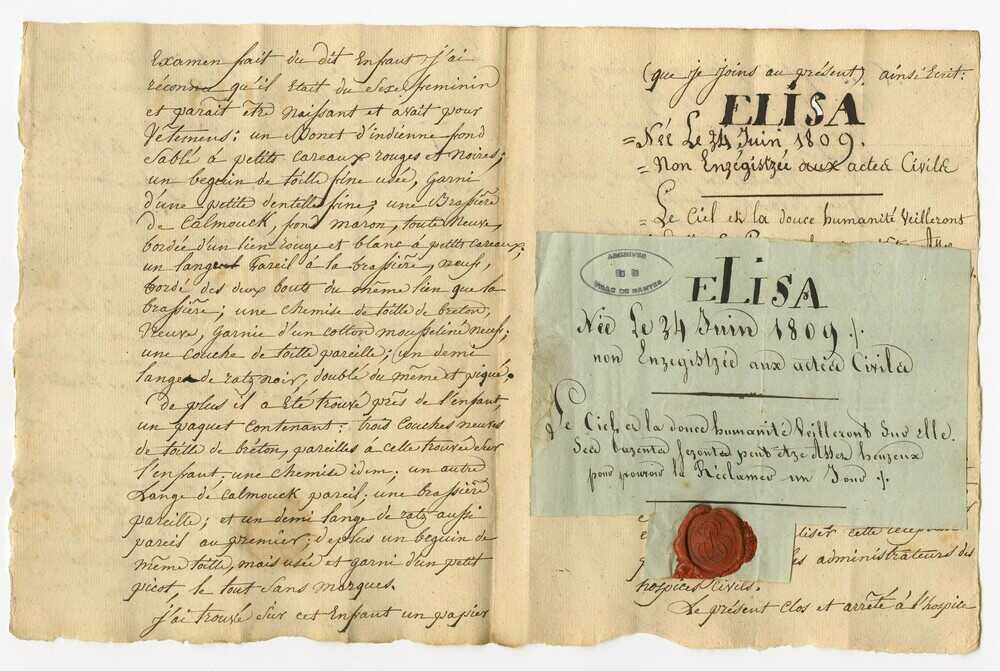 Examen fait du dit Enfant, j'ai
réconnu qu'il était du Sexe feminin
et paraît être naissant et avait pour
Vêtemens: un Bonet d'indienne fond
Sablé à petits careaux rouges et Noires;
un beguin de toille fine usée, garni
d'une petite dentelle fine; une Brassière
de Calmouck, fond maron, toute Neuve
bordée d'un lien rouge et blanc à petits careaux;
un lange Pareil à la brassière, neuf,
bordé des deux bouts du même lien que la
brassière; une chemise de toille de breton,
Neuve, garnie d'un cotton mousseliné neuf;
une couche de toille pareille; un demi
lange de ratz noir, doublé du même et piqué.
De plus il a été trouvé près de l'enfant,
un paquet contenant: trois couches neuves
de toille de bréton, pareilles à celle trouvée Sur
l'enfant; une chemise idem; un autre
Lange de Calmouck pareil; une brassière
pareille; et un demi lange de ratz aussi
pareil au premier; deplus un beguin de
même toille, mais usée et garni d'un petit
picot, le tout Sans marques.
j'ai trouvé Sur cet Enfant un papier
(que je joins au présent) ainsi Ecrit:
ELISA
= Née Le 24 Juin 1809.
= Non Enregistrée aux actes Civils
= Le Ciel et la douce humanité Veilleront
ARCHIVES
VILLE DE NANTES
ELISA
Née Le 24 Juin 1809 ./.
non Enregistrée aux actes Civils
Le Ciel, et la douce humanité Veilleront Sur Elle.
Ses parents seront peut Etre Assez heureux
pour pouvoir la Réclamer un Jour ./.
liser cette
les administrateurs des
hospices Civils.
Le présent Clos et arrêté à l'hospice